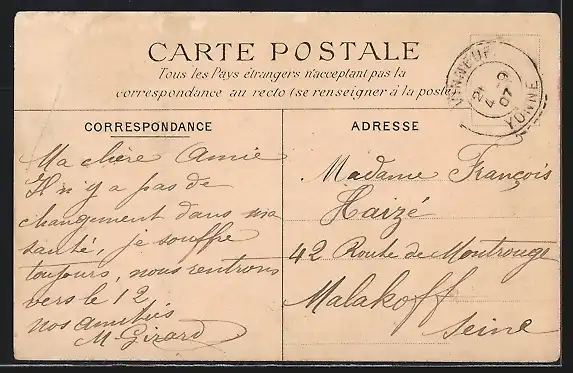 CARTE POSTALE
Tous les Pays étrangers n'acceptant pas la
correspondance au recto (se renseigner à la poste)
CORRESPONDANCE
Ma chère Amie
Il n'y a pas de
changement dans ma
santé, je souffre
toujours, nous rentrons
vers le 12
nos amitiés
M. Girard
ADRESSE
Madame François
Haizé
42 Route de Montrouge
Malakoff
Seine
YONNE